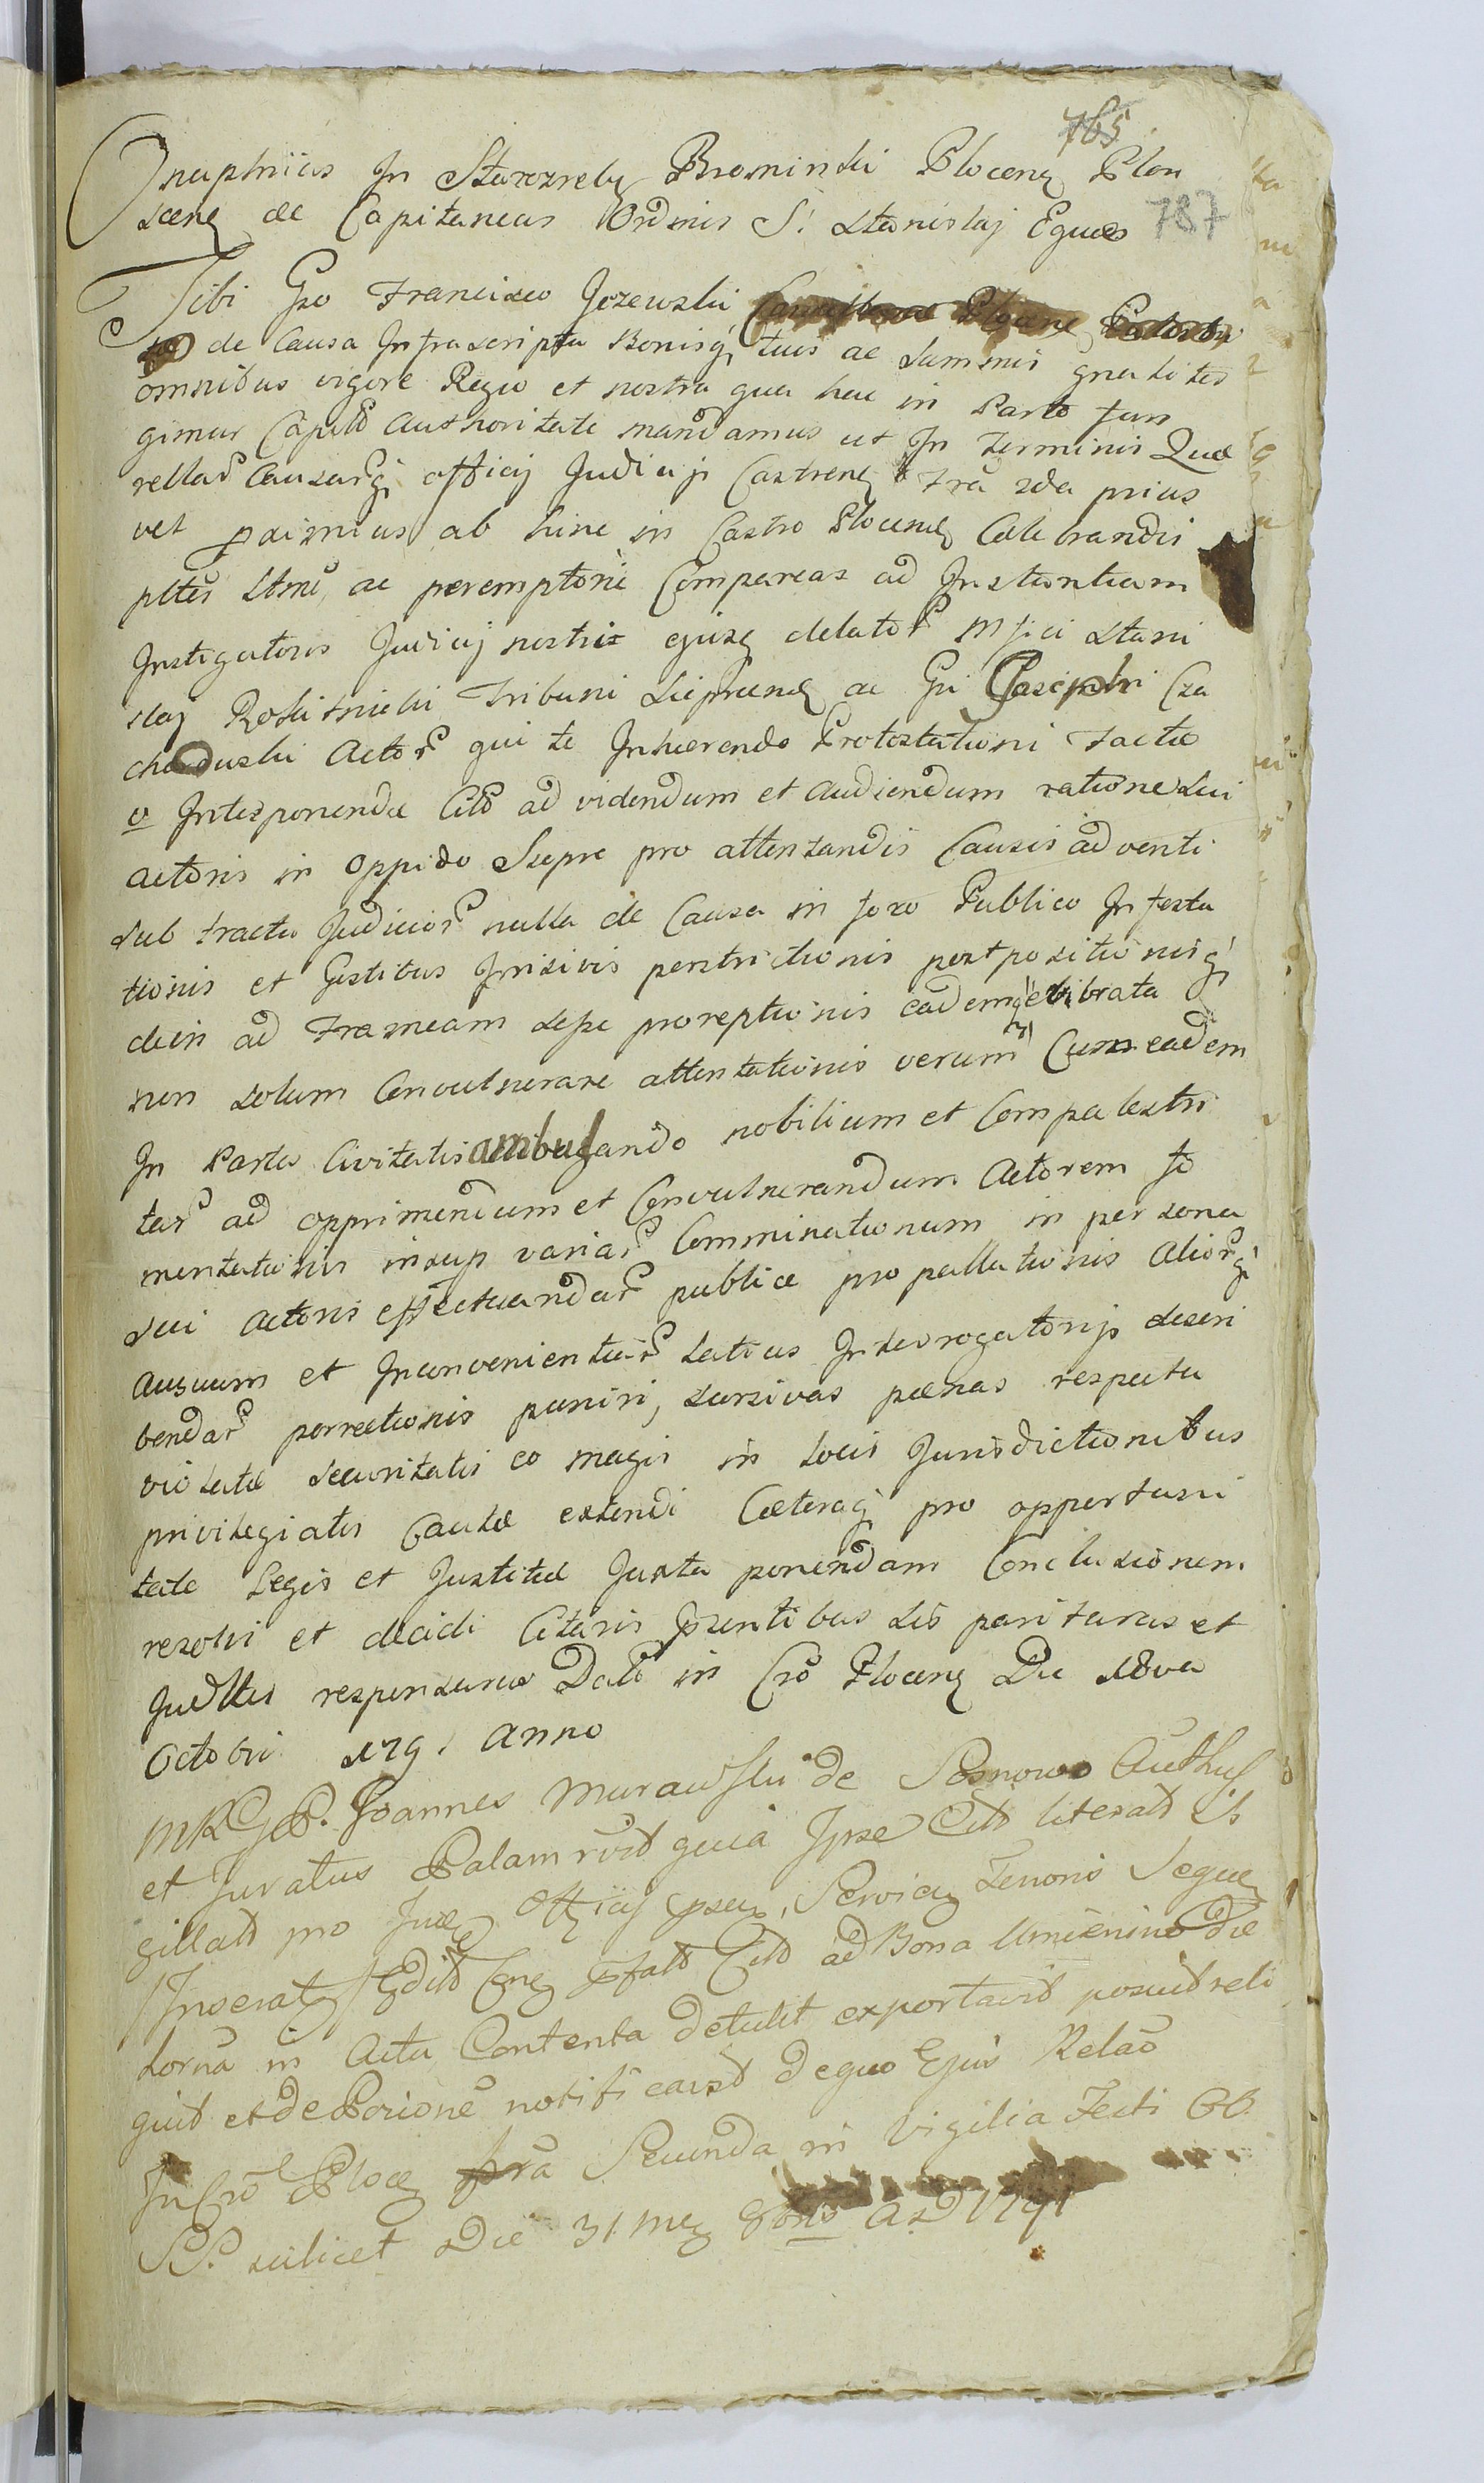 765
Onuphrius In Staroźreby Brominski Plocens Plon
scens ac Capitaneus Ordinis S. Stanislaj Eques 787
Tibi Gso Francisco Jezewski
de Causa Infrascripta Bonisq tuis ac summis gnalites
omnibus vigore Regio et nostra qua hac in Parte fun
gimur Capitli Authoritate mandamus ut In Terminis Que
rellar Causarq officij Judicij Castrens Fra 2da prius
vel proximius ab hinc in Castro Plocens Celebrandis
pltes Ltme, ac peremptorie Compareas ad Instantiam
Instigatoris Judicij nostri ejusq delator Mfici Stani
slaj Rokitnicki Tribuni Lieprcens ac Gsi Josephi Cza
chorduski Actor qui te Inhaerendo Protestationi Factae
v Interponendae Cito ad videndum et Audiendum ratione Sui
actoris in oppido Sieprc pro attentandis Causis adventi
sub tractu Judicior nulla de Causa in foro Publico Infesta
tionis et Gestibus Irrisivis perstrictionis postpositionisq
dein ad Frameam sepe proreptionis eademq evibrata
non solum Convulnerare attentationis verum Cum eadem
In Partes Civitatis ambulando nobilium et Compalestri
tar ad opprimendum et Convulnerandum Actorem fo
mentationis insup variar Comminationum in persona
sui Actoris effectuandar publice propallationis Aliorq
Ausuum et Inconvenientiar Latius Interrogatorijs descri
bendar perrectionis puniri, cursivas paenas respectu
violatae securitatis eo magis in Locis Jurisdictionibus
privilegiatis Cautae extendi Caeteraq pro opportuni
tate Legis et Justitiae Juxta ponendam Conclusionem
resolvi et decidi Citaris Psentibus Lis pariturus et
Judlter responsurus Datt in Cro Plocens Die 18va
Octobri 179. Anno
MRGB. Joannes Murawski de Sosnowo Authus
et Juratus Palam rcdt quia Ipse Citt literatt Si
gillatt pro Jure Officij psens, Servien Tenoris Seque
/Inserat/ Editt Cone Pfatt Citt ad Bona Umienino Die
horna in Actu Contenta detulit exportavit posuit reli
quit et de Porione notificavit de quo Ejus Relao
In Cro Ploce Fra Secunda in Vigilia Festi OO.
SS. scilicet Die 31. Mes 8bris A D 1791